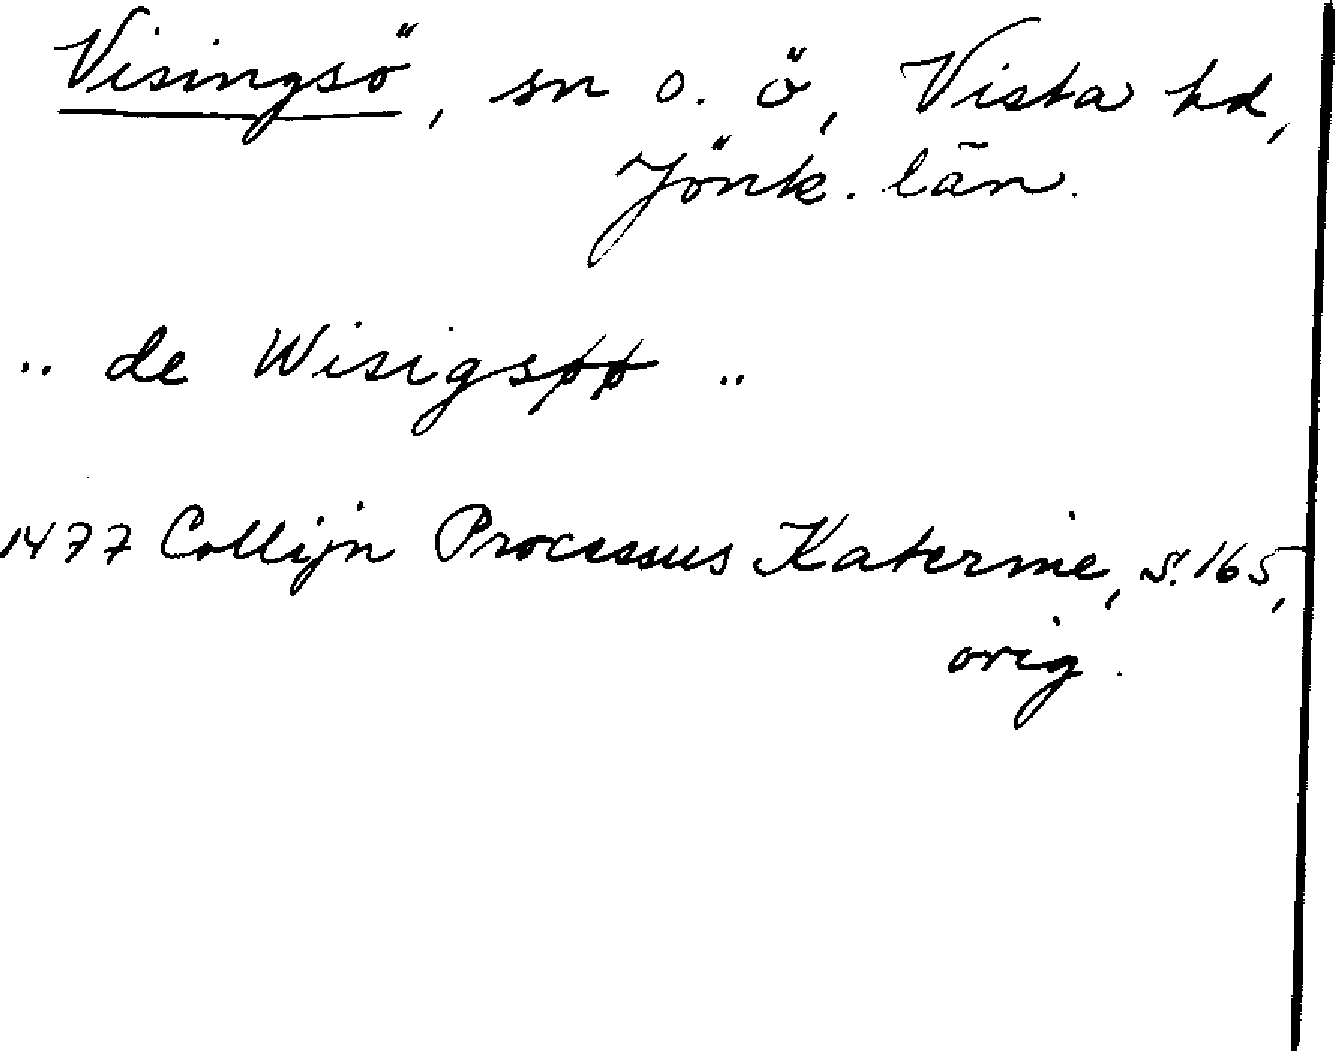 Visingsö, sn o. ö, Vista hd,
Jönk. län.
.. de Wisigsøø ..
1477 Collijn Processus Katerine, s. 165,
orig.